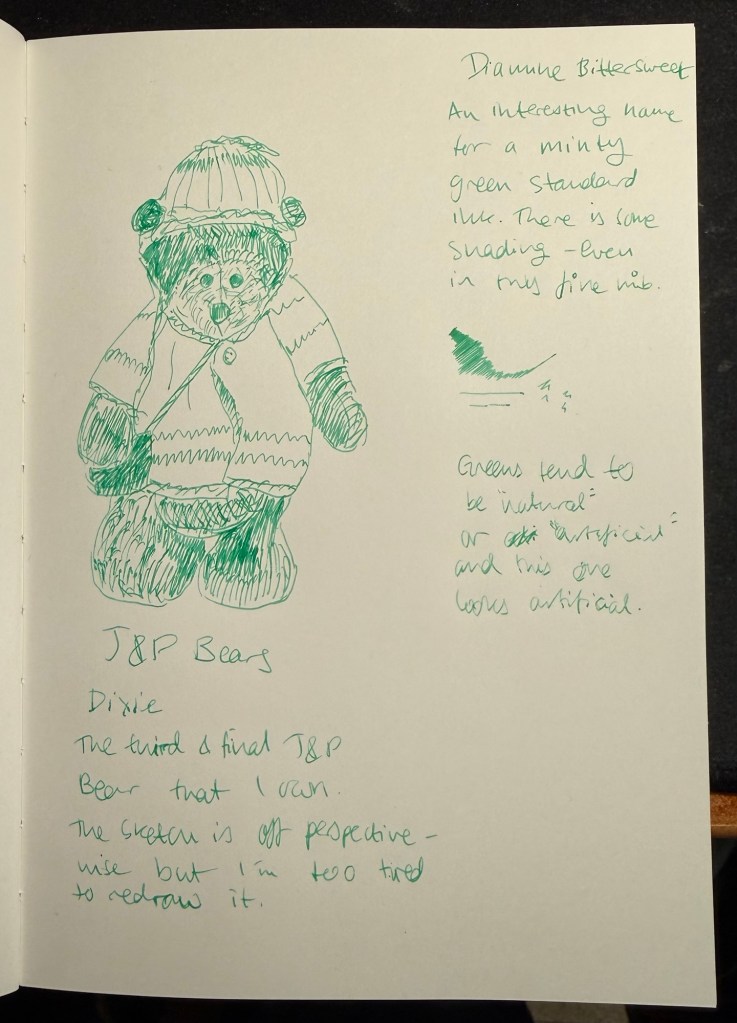 Diamine Bittersweet
An interesting name
for a minty
green standard
ink. There is some
shading – even
in this fine nib.
Greens tend to
be "natural"
or "artificial"
and this one
looks artificial.
J&P Bears
Dixie
The third & final J&P
Bear that I own.
The sketch is off perspective -
wise but I'm too tired
to redraw it.